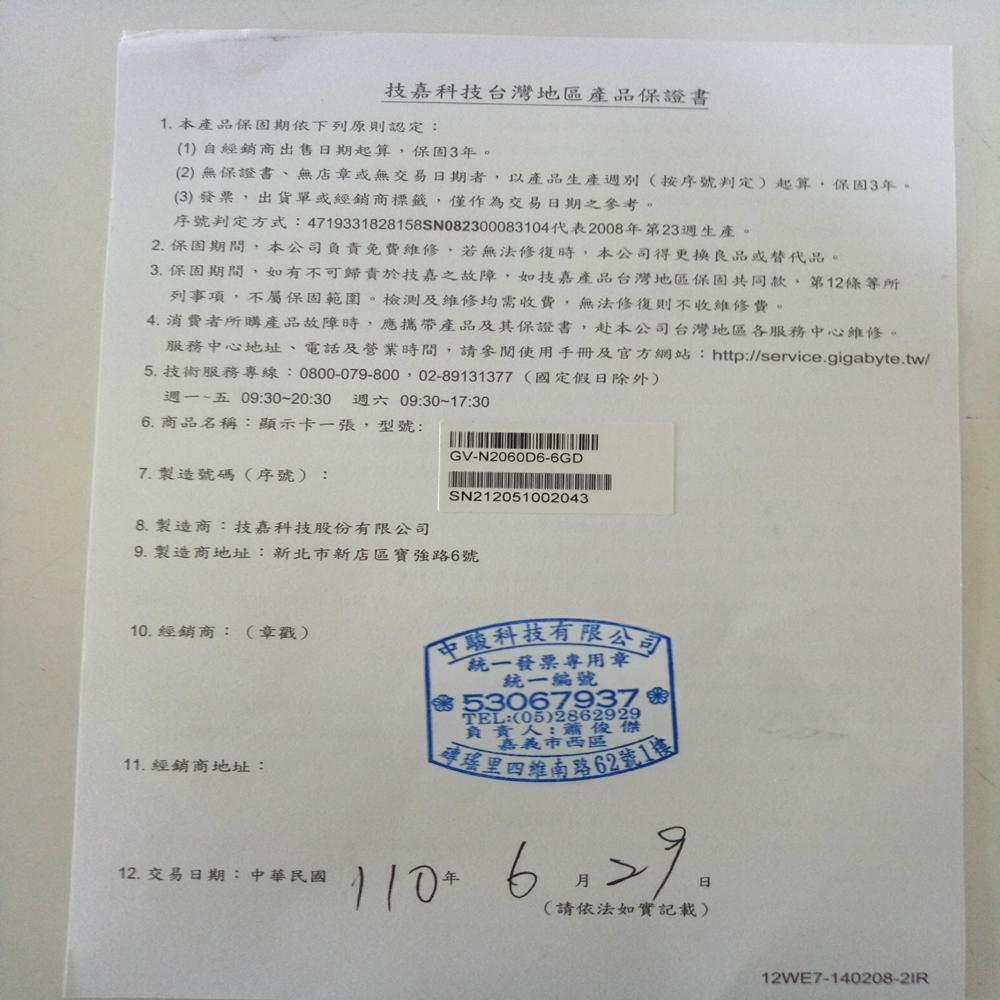 技嘉科技台灣地區產品保證書
1. 本產品保固期依下列原則認定：
(1) 自經銷商出售日期起算，保固3年。
(2) 無保證書、無店章或無交易日期者，以產品生產週別（按序號判定）起算，保固3年。
(3) 發票，出貨單或經銷商標籤，僅作為交易日期之參考。
序號判定方式：4719331828158SN082300083104代表2008年第23週生產。
2. 保固期間，本公司負責免費維修，若無法修復時，本公司得更換良品或替代品。
3. 保固期間，如有不可歸責於技嘉之故障，如技嘉產品台灣地區保固共同款，第12條等所
列事項，不屬保固範圍。檢測及維修均需收費，無法修復則不收維修費。
4. 消費者所購產品故障時，應攜帶產品及其保證書，赴本公司台灣地區各服務中心維修。
服務中心地址、電話及營業時間，請參閱使用手冊及官方網站：http://service.gigabyte.tw/
5. 技術服務專線：0800-079-800，02-89131377（國定假日除外）
週一~五 09:30~20:30 週六 09:30~17:30
6. 商品名稱：顯示卡一張，型號:
GV-N2060D6-6GD
7. 製造號碼（序號）：
SN212051002043
8. 製造商：技嘉科技股份有限公司
9. 製造商地址：新北市新店區寶強路6號
10. 經銷商：（章戳）
中駿科技有限公司
統一發票專用章
統一編號
53067937
TEL:(05)2862929
負責人：蕭俊傑
嘉義市西區
磚磘里四維南路62號1樓
11. 經銷商地址：
12. 交易日期：中華民國 110年 6月 29日
（請依法如實記載）
12WE7-140208-2IR